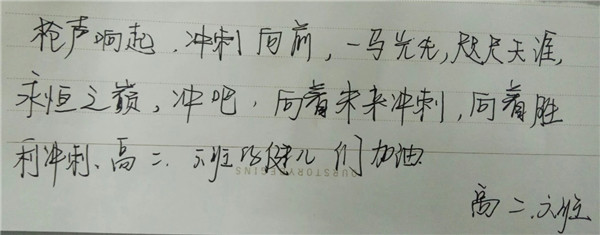 枪声响起,冲刺向前,一马当先,咫尺天涯,
永恒之巅,冲吧,向着未来冲刺,向着胜
利冲刺、高二.六班的健儿们加油.
高二.六班